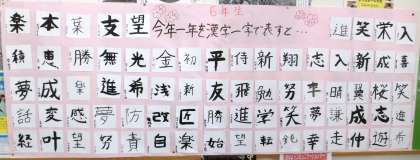 ６年生
今年一年を漢字一字で表すと…
楽 本 葉 支 望 進 笑 栄 入
積 恵 勝 無 光 金 初 平 侍 新 翔 志 入 新 成 喜
夢 成 楽 進 希 浅 新 友 飛 勉 努 幸 晴 翼 桜 笑
話 変 感 夢 防 改 匠 勝 進 学 笑 夢 謙 成 志 遊
経 叶 望 努 責 自 楽 始 望 転 鈍 幸 走 仲 遊